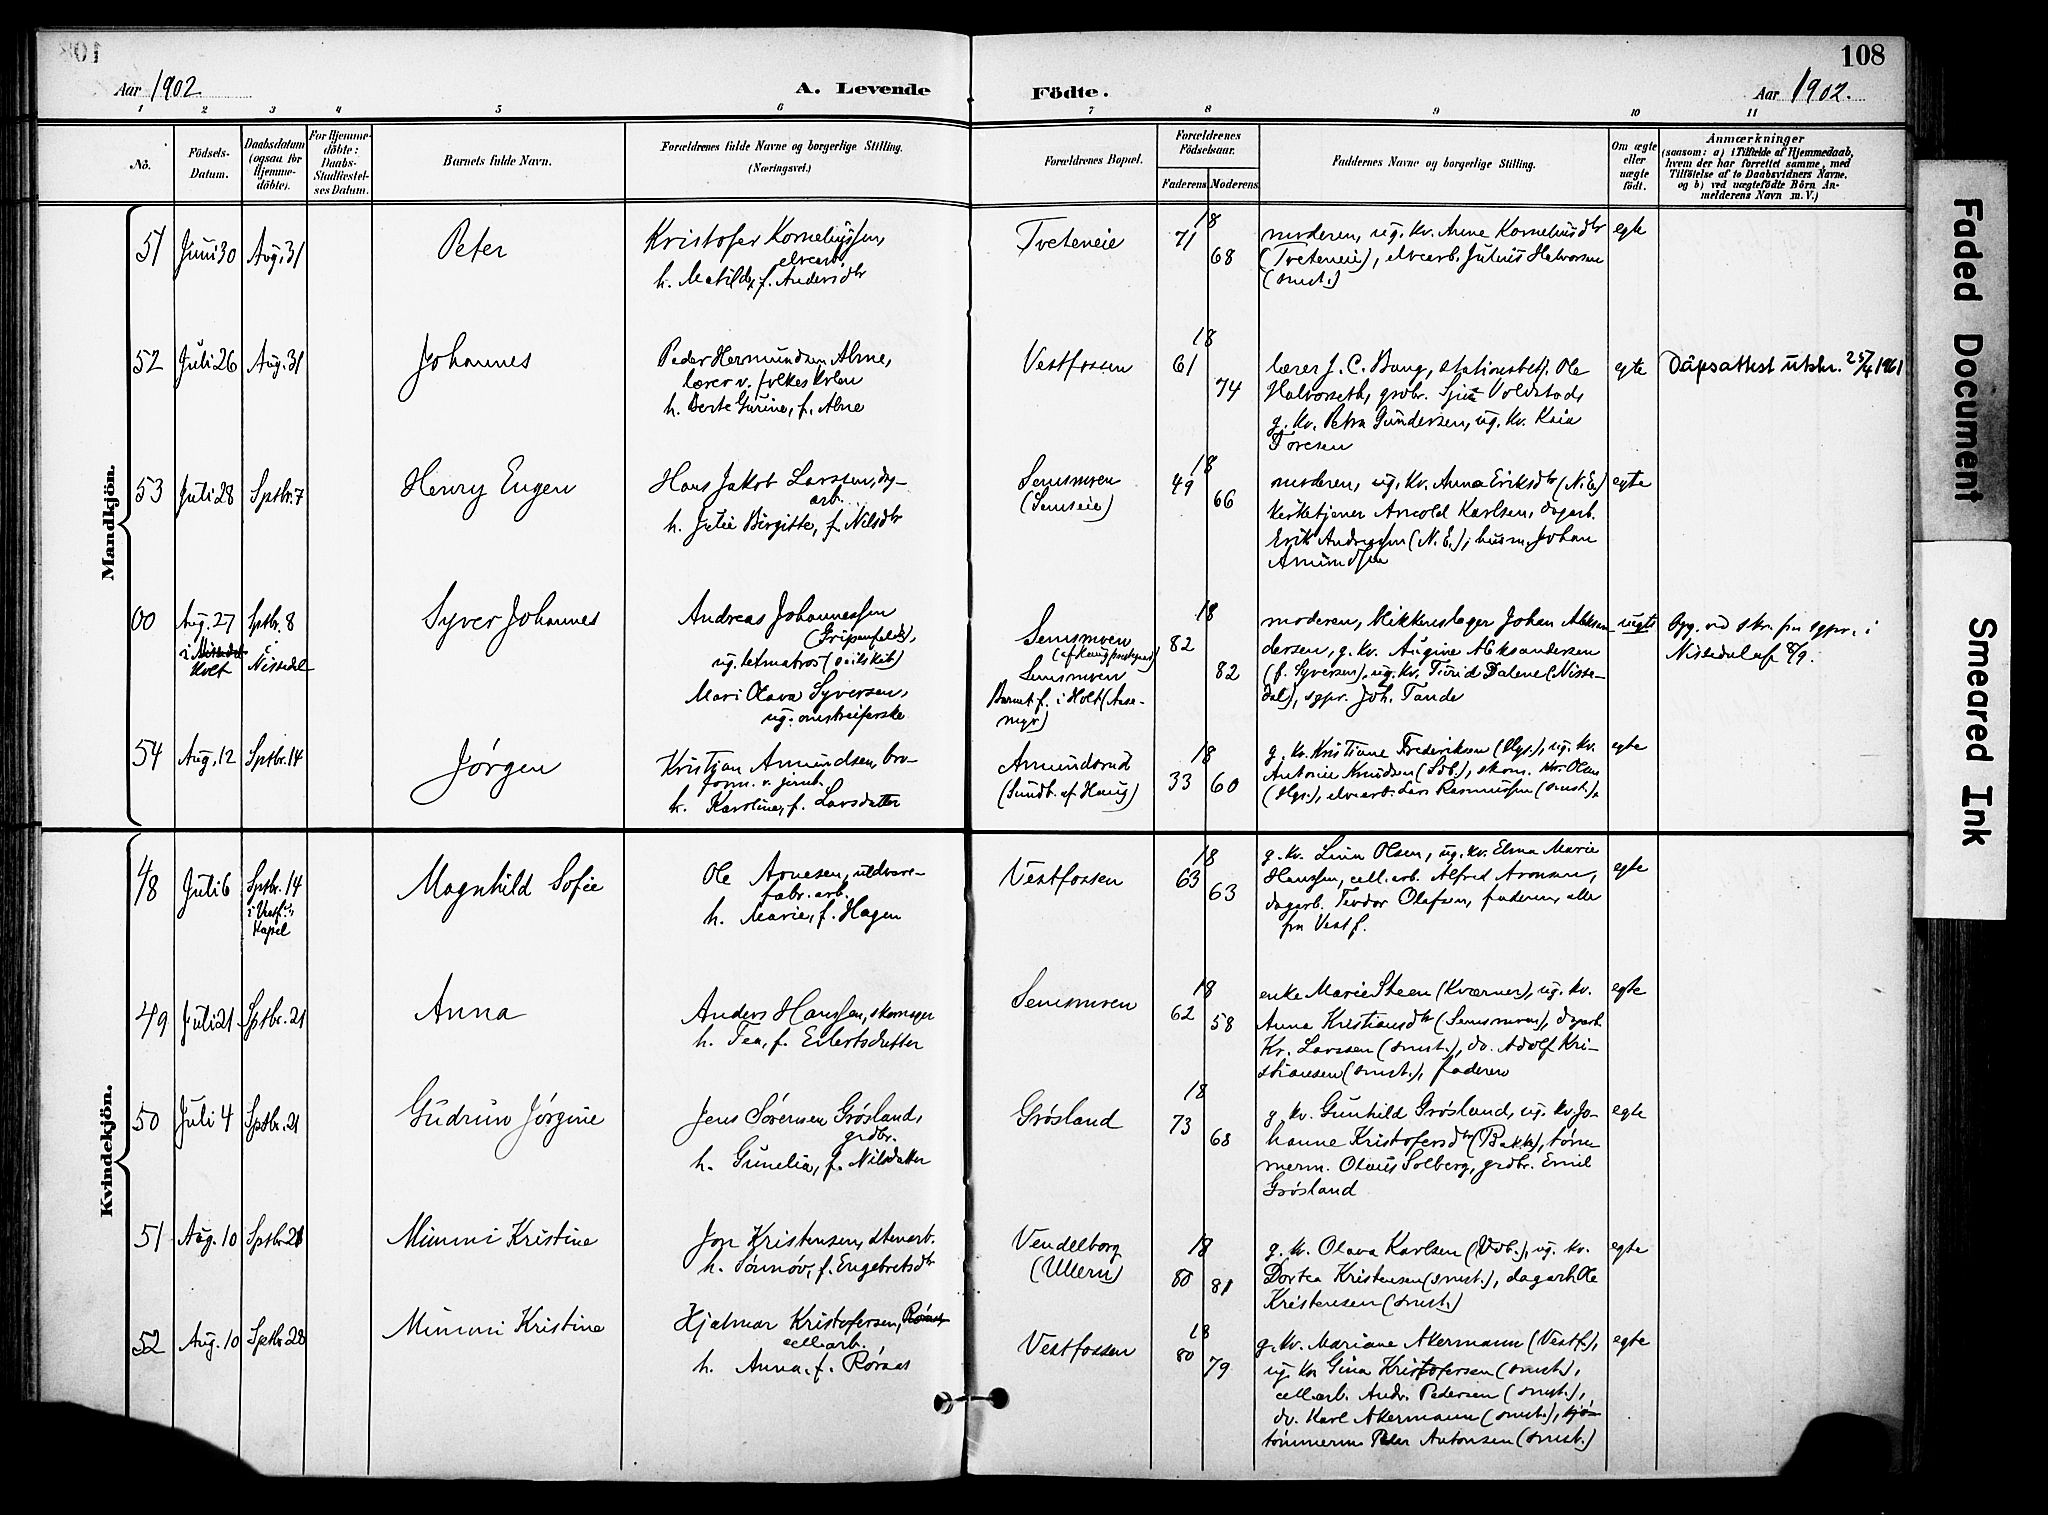 108
Aar 1902
A. Levende
Födte.
Aar 1902.
1 2 3 4 5 6 7 8 9 10 11
No.
Födsels-
Datum.
Daabsdatum
(ogsaa for
Hjemme-
döbte).
For Hjemme-
döbte:
Daabs-
Stadfæstel-
ses Datum.
Barnets fulde Navn.
Forældrenes fulde Navne og borgerlige Stilling.
(Næringsvei.)
Forældrenes Bopæl.
Forældrenes
Födselsaar.
Faderens.
Moderens.
Faddernes Navne og borgerlige Stilling.
Om ægte
eller
uægte
födt.
Anmærkninger
(saasom: a) i Tilfælde af Hjemmedaab,
hvem der har forrettet samme, med
Tilföielse af to Daabsvidners Navne.
og b) ved uægtefödte Börn An-
melderens Navn m. V.)
Mandkjön.
51
Juni 30
Aug. 31
Peter
Kristofer Korneliussen,
elvearb.
h. Matilde, f. Andersdtr
Tveteneie
18
71
68
moderen, ug. kv. Anne Korneliusdtr
(Tveteneie), elvearb. Julius Halvorsen
(smst.)
egte
52
Juli 26
Aug. 31
Johannes
Peder Hermundsen Alme,
lærer v. folkeskolen
h. Berte Gurine, f. Alme
Vestfossen
18
61
74
lærer J. C. Bang, stationsbetj. Ole
Halvorseth, grdbr. Sjul Voldstad,
g. kv. Petra Gundersen, ug. kv. Kaia
Toresen
egte
Dåpsattest utskr. 25/4 1961
53
Juli 28
Sptbr. 7
Henry Eugen
Hans Jakob Larsen, dg-
arb.
h. Julie Birgitte, f. Nilsdtr
Semsmoen
(Semseie)
18
49
66
moderen, ug. kv. Anna Eriksdtr (N.E.)
kirketjener Arnold Karlsen, dagarb.
Erik Andreassen (N. E.), husm. Johan
Amundsen
egte
00
Aug. 27
i
Holt
Sptbr. 8
i
Nissedal
Syver Johannes
Andreas Johannessen
(Gripenfeldt),
ug. letmatros (seilskib)
Mari Olava Syversen,
ug. omstreiferske
Semsmoen
Semsmoen
Barnet f. i Holt (Aase-
myr)
18
82
82
moderen, blikkenslager Johan Aleksan
dersen, g. kv. Augine Aleksandersen
(f. Syversen), ug. kv. Turid Dalene (Nisse-
dal), sgpr. Joh. Tande
uegte
Opg. ved skr. fra sgpr. i
Nissedal af 8/9.
54
Aug. 12
Sptbr. 14
Jørgen
Kristian Amundsen, bro-
form. v. jernb.
h. Karoline, f. Larsdatter
Amundsrud
(Sundb. af Haug)
18
33
60
g. kv. Kristiane Frederiksen (Hgs.), ug. kv.
Antonie Knudsen (Sdb.), skom. Kr. Olsen
(Hgs.), elvearb. Lars Rasmussen (smst.),
egte
Kvindekjön.
48
Juli 6
Sptbr. 14
i Vestf.
kapel
Magnhild Sofie
Ole Arnesen, uldvare-
fabr. arb.
h. Marie, f. Hagen
Vestfossen
18
63
63
g. kv. Lina Olsen, ug. kv. Elma Marie
Hanssen, cell. arb. Alfred Aronsen,
dagarb. Teodor Olafsen, faderen, alle
fra Vestf.
egte
49
Juli 21
Sptbr. 21
Anna
Anders Hanssen, skomager
h. Tea, f. Eilertsdatter
Semsmoen
18
62
58
enke Marie Steen (Kværner), ug. kv.
Anna Kristiansdtr (Semsmoen), dagarb.
Kr. Larssen (smst.), do. Adolf Kri-
stiansen (smst.), faderen
egte
50
Juli 4
Sptbr. 21
Gudrun Jørgine
Jens Sørensen Grøsland,
grdbr.
h. Gunelia, f. Nilsdatter
Grøsland
18
73
68
g. kv. Gunhild Grøsland, ug. kv. Jo-
hanne Kristofersdtr (Bakke), tøm-
merm. Olaus Solberg, grdbr. Emil
Grøsland
egte
51
Aug. 10
Sptbr. 28
Mimmi Kristine
Jon Kristensen, stenarb.
h. Tønnøv, f. Engebretsdtr
Vendelborg
(Ullern)
18
80
81
g. kv. Olava Karlsen (Vdb.), ug. kv.
Dortea Kristensen (smst.), dagarb. Ole
Kristensen (smst.)
egte
52
Aug. 10
Sptbr. 28
Mimmi Kristine
Hjalmar Kristofersen, Røraas
cell. arb.
h. Anna, f. Røraas
Vestfossen
18
80
79
g. kv. Mariane Akermann (Vestf.),
ug. kv. Gina Kristofersen (smst.),
cell. arb. Andr. Pedersen (smst.),
do. Karl Akermann (smst.),
tømmerm. Peter Antonsen (smst.)
egte
Faded Document
Smeared Ink